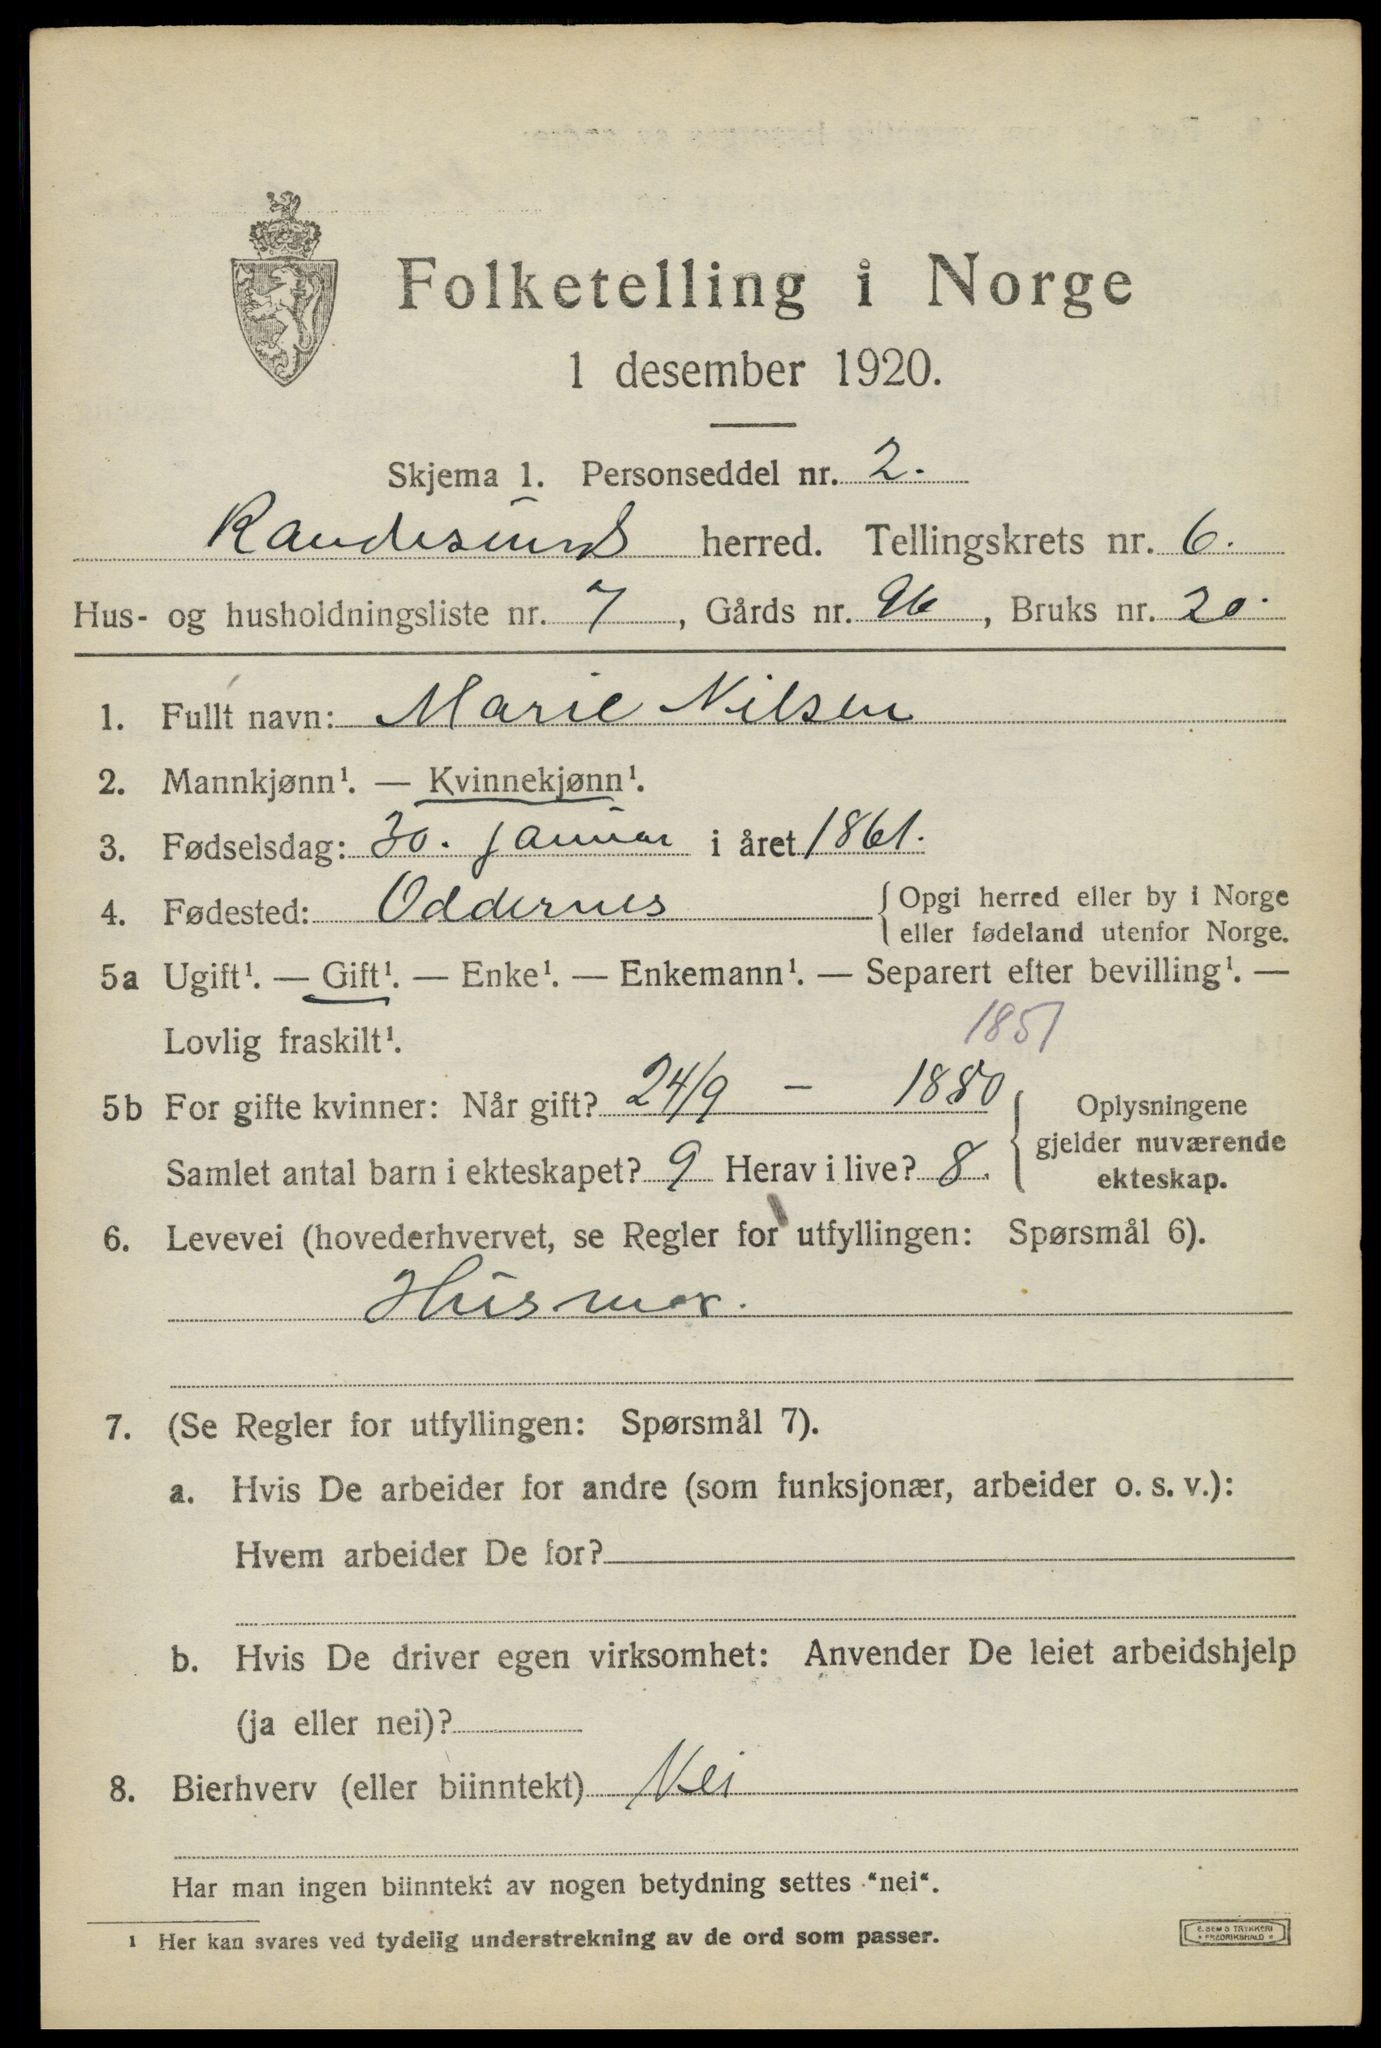 Folketelling i Norge
1 desember 1920.
Skjema 1. Personseddel nr. 2.
Randesund herred. Tellingskrets nr. 6.
Hus- og husholdningsliste nr. 7, Gårds nr. 96, Bruks nr. 20.
1. Fullt navn: Marie Nilsen
2. Mannkjønn¹. — Kvinnekjønn¹.
3. Fødselsdag: 30. januar i året 1861.
4. Fødested: Oddernes {Opgi herred eller by i Norge
eller fødeland utenfor Norge.
5a Ugift¹. — Gift¹. — Enke¹. — Enkemann¹. — Separert efter bevilling¹. —
Lovlig fraskilt¹.
1851
5b For gifte kvinner: Når gift? 24/9 – 1880
Samlet antal barn i ekteskapet? 9 Herav i live? 8.
{Oplysningene
gjelder nuværende
ekteskap.
6. Levevei (hovederhvervet, se Regler for utfyllingen: Spørsmål 6).
Husmor.
7. (Se Regler for utfyllingen: Spørsmål 7).
a. Hvis De arbeider for andre (som funksjonær, arbeider o. s. v.):
Hvem arbeider De for?
b. Hvis De driver egen virksomhet: Anvender De leiet arbeidshjelp
(ja eller nei)?
8. Bierhverv (eller biinntekt) Nei
Har man ingen biinntekt av nogen betydning settes "nei".
¹ Her kan svares ved tydelig understrekning av de ord som passer.
E. SEM'S TRYKKERI
* FREDRIKSHALD *